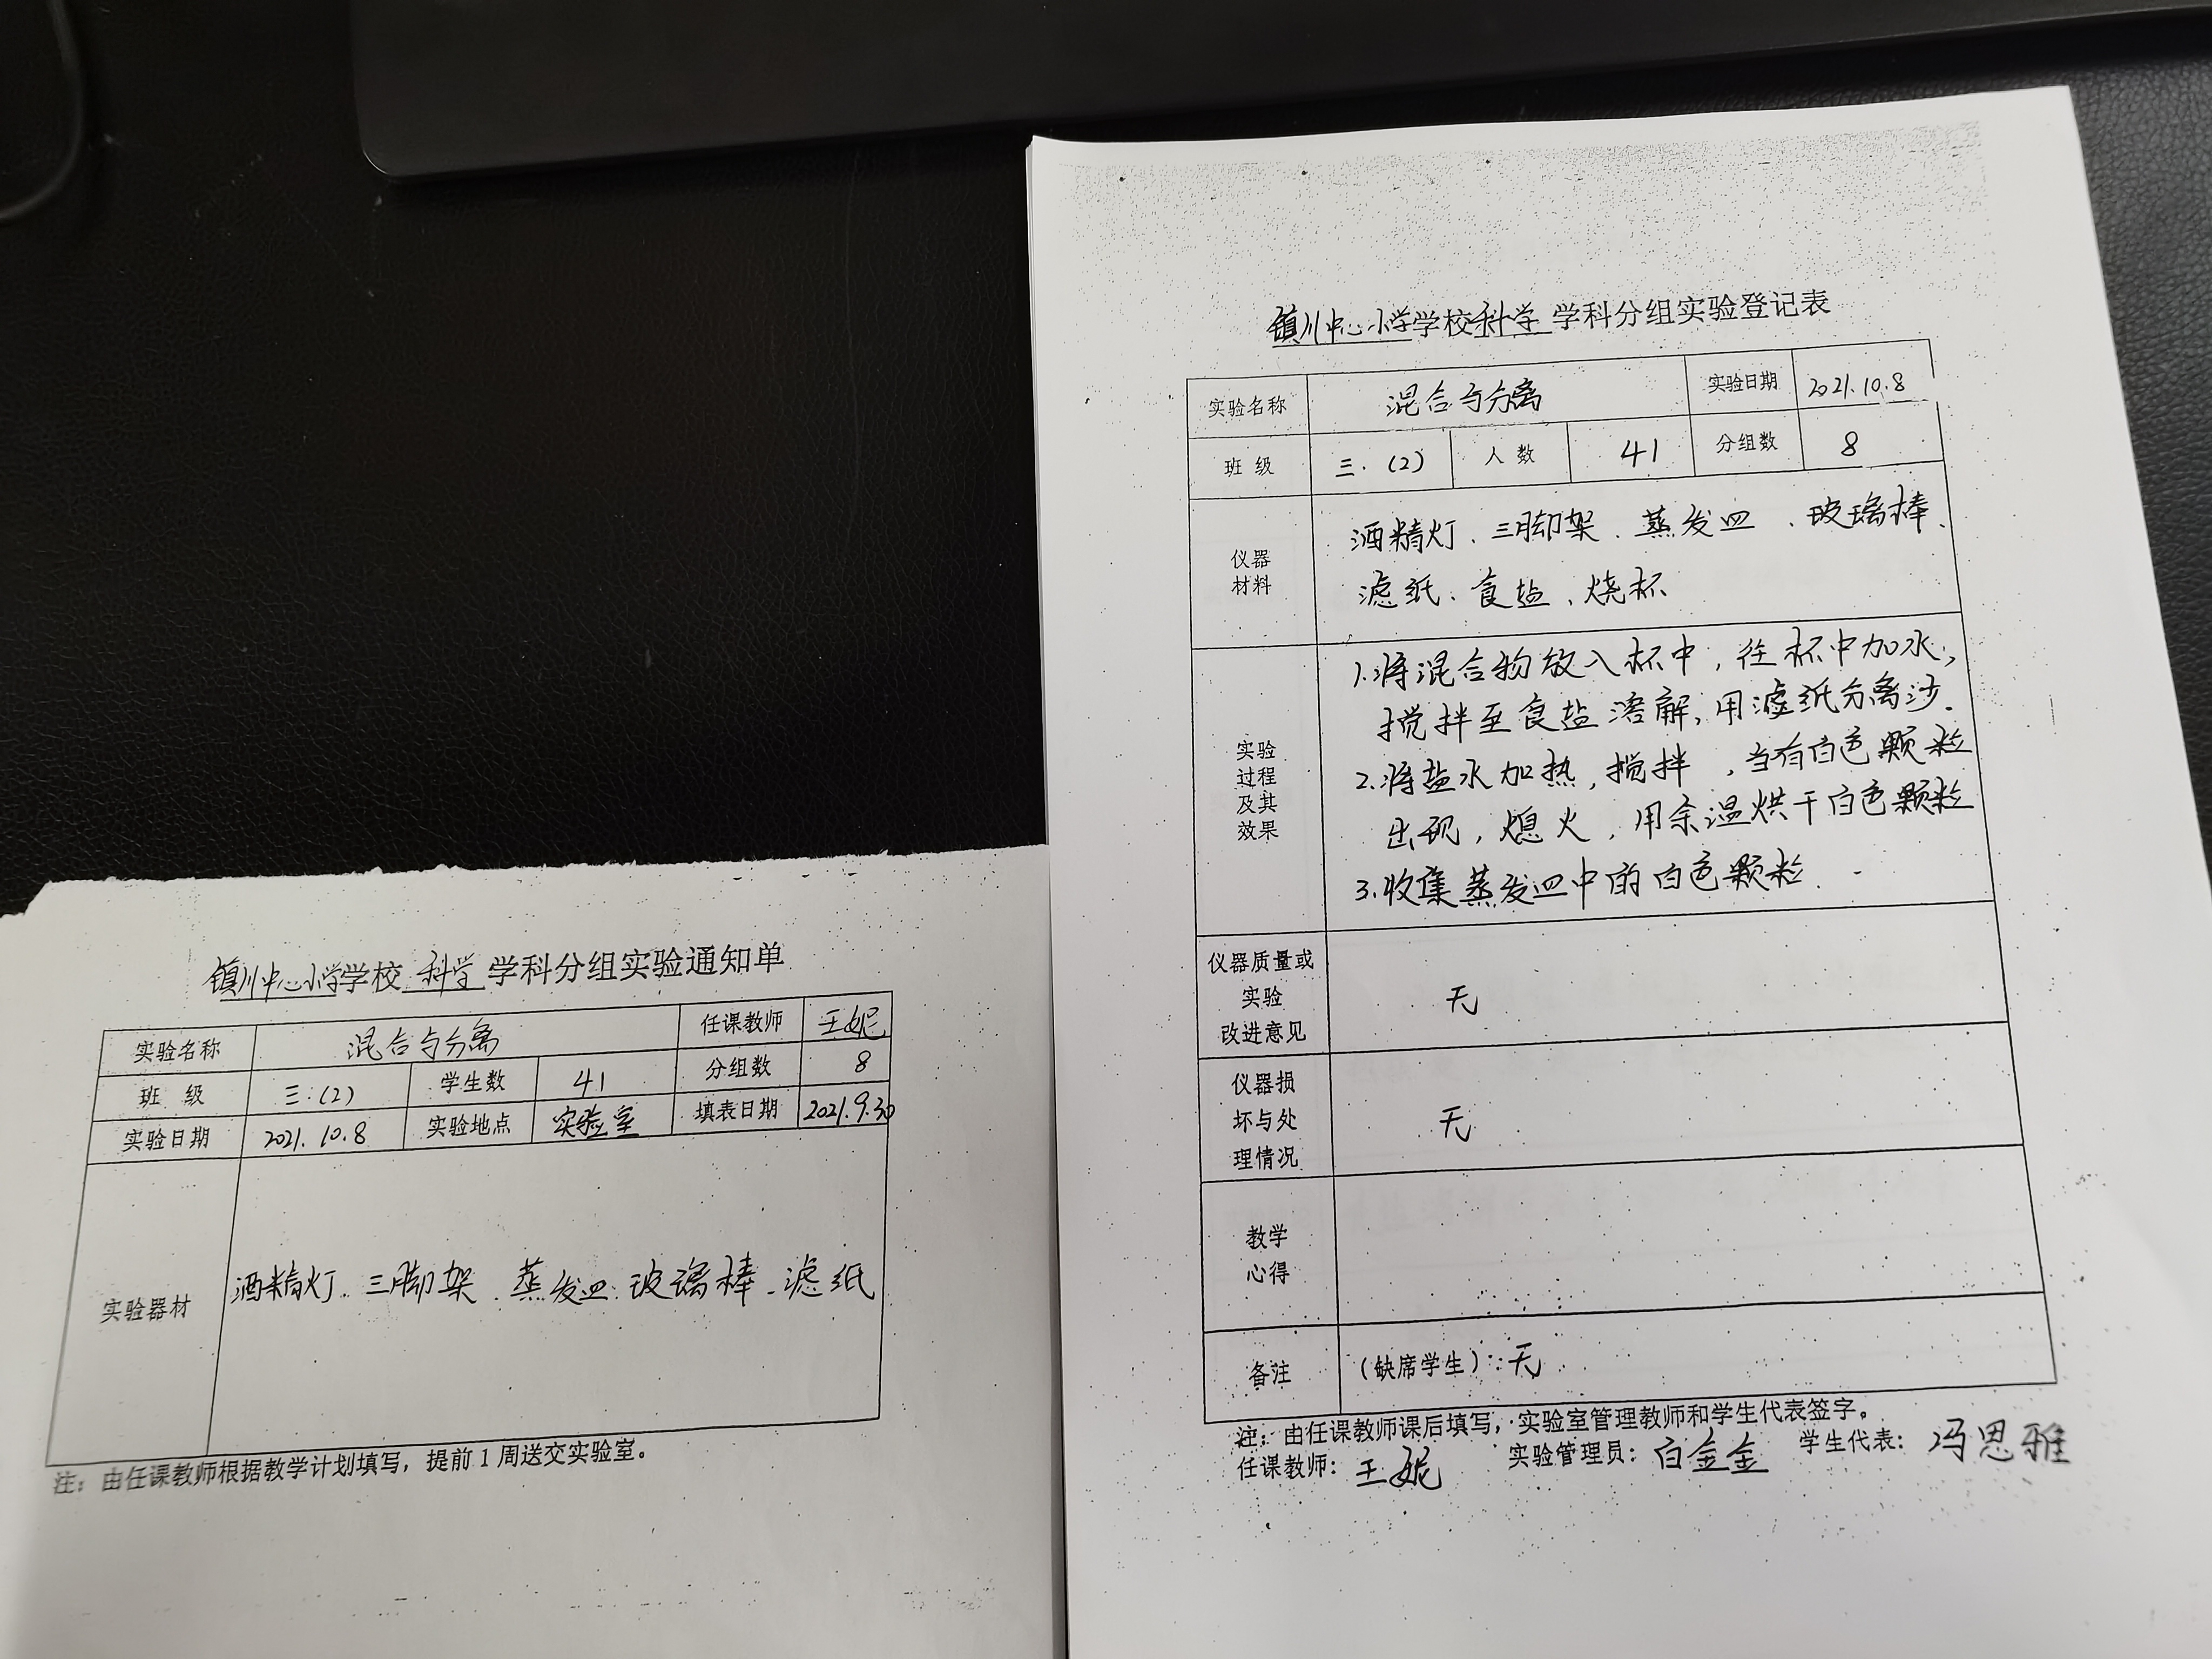 镇川中心小学学校科学学科分组实验通知单
实验名称 混合与分离 任课教师 王妮
班 级 三.(2) 学生数 41 分组数 8
实验日期 2021.10.8 实验地点 实验室 填表日期 2021.9.30
实验器材 酒精灯、三脚架、蒸发皿、玻璃棒、滤纸
注：由任课教师根据教学计划填写，提前1周送交实验室。
镇川中心小学学校科学学科分组实验登记表
实验名称 混合与分离 实验日期 2021.10.8
班 级 三.(2) 人 数 41 分组数 8
仪器
材料
酒精灯、三脚架、蒸发皿、玻璃棒、
滤纸、食盐、烧杯
实验
过程
及其
效果
1.将混合物放入杯中，往杯中加水，
搅拌至食盐溶解，用滤纸分离沙.
2.将盐水加热，搅拌，当有白色颗粒
出现，熄火，用余温烘干白色颗粒
3.收集蒸发皿中的白色颗粒.
仪器质量或
实验
改进意见
无
仪器损
坏与处
理情况
无
教学
心得
备注 （缺席学生）：无
注：由任课教师课后填写，实验室管理教师和学生代表签字。
任课教师：王妮 实验管理员：白金金 学生代表：冯思雅